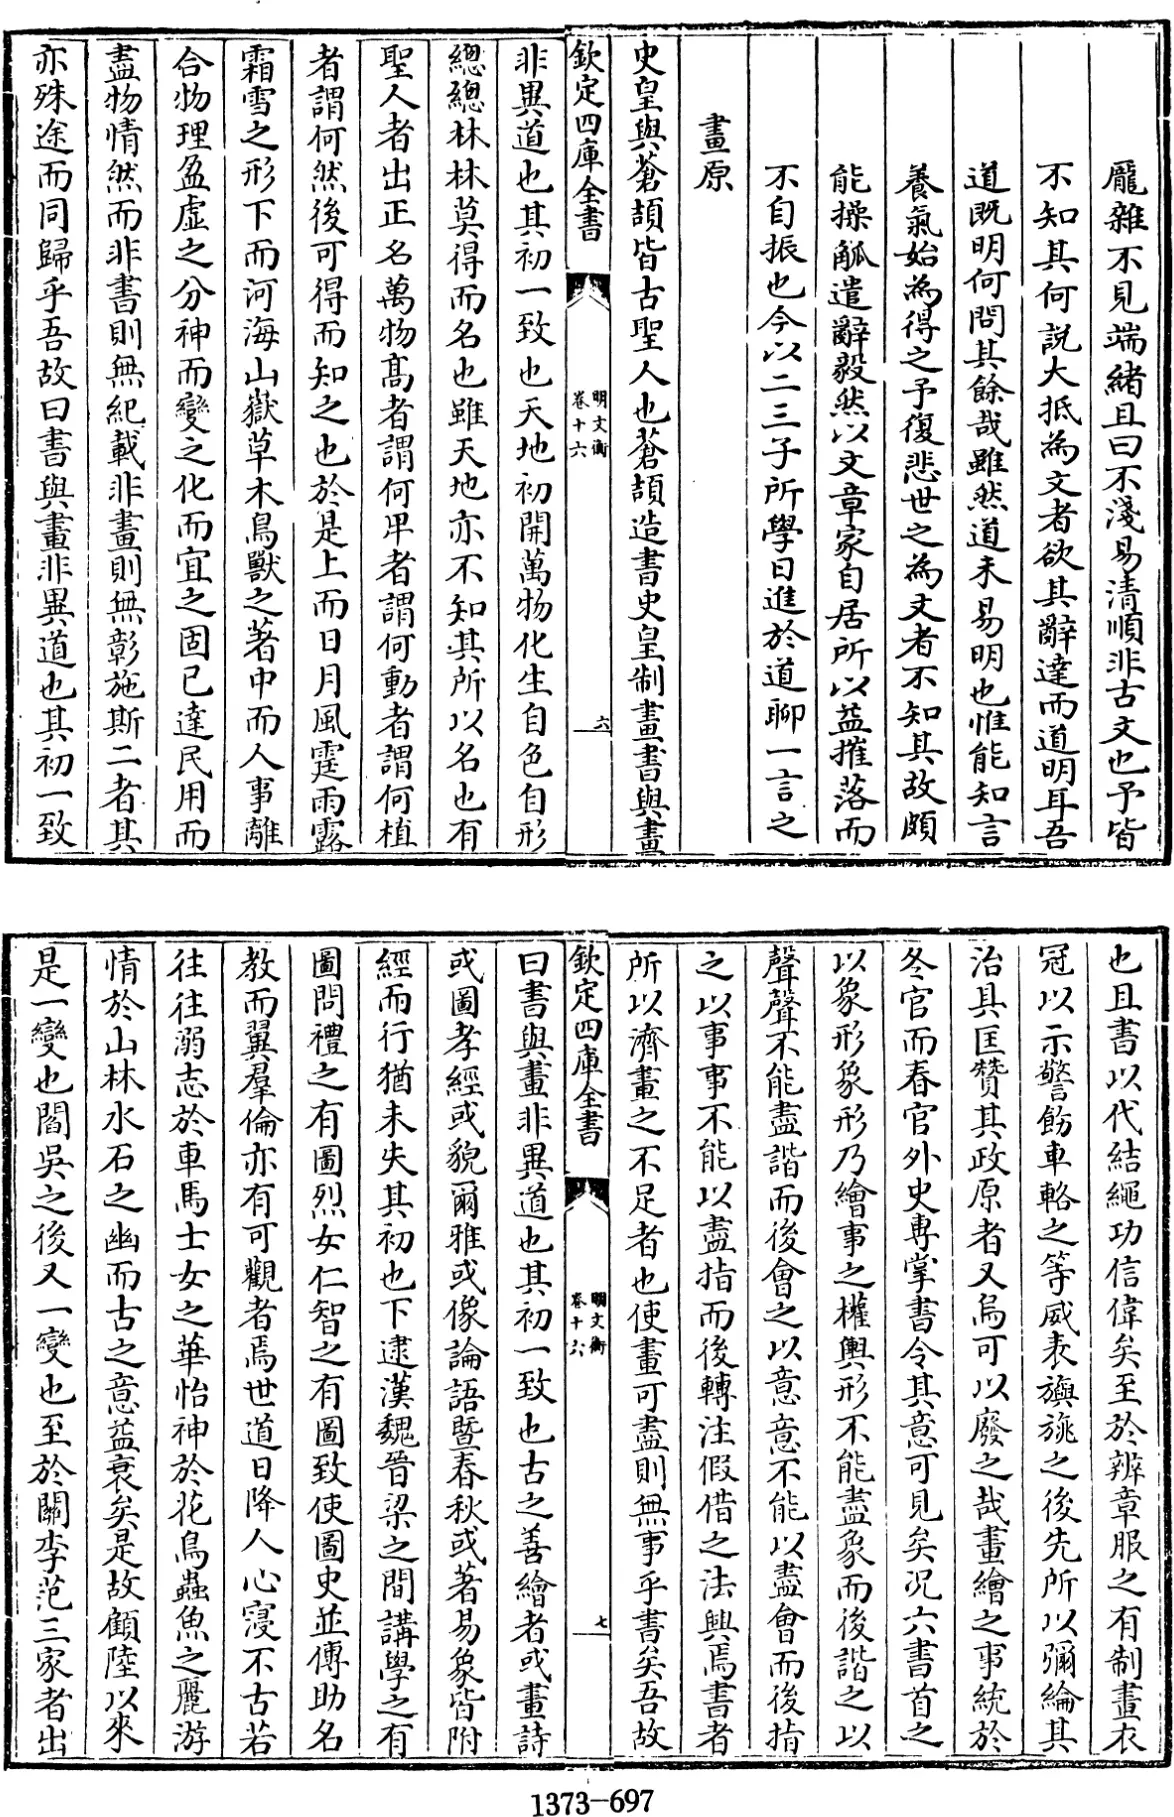 龎雜不見端緒且曰不淺易清順非古文也予皆
不知其何説大抵為文者欲其辭達而道明耳吾
道既明何問其餘哉雖然道未易明也惟能知言
養氣始為得之予復悲世之為文者不知其故頗
能操觚遣辭毅然以文章家自居所以益摧落而
不自振也今以二三子所學日進於道聊一言之
畫原
史皇與蒼頡皆古聖人也蒼頡造書史皇制畫書與畫
欽定四庫全書
明文衡
卷十六
六
非異道也其初一致也天地初開萬物化生自色自形
總總林林莫得而名也雖天地亦不知其所以名也有
聖人者出正名萬物髙者謂何卑者謂何動者謂何植
者謂何然後可得而知之也於是上而日月風霆雨露
霜雪之形下而河海山嶽草木鳥獸之著中而人事離
合物理盈虚之分神而變之化而宜之固已達民用而
盡物情然而非書則無紀載非畫則無彰施斯二者其
亦殊途而同歸乎吾故曰書與畫非異道也其初一致
也且書以代結繩功信偉矣至於辨章服之有制畫衣
冠以示警飭車輅之等威表旟旐之後先所以彌綸其
治具匡贊其政原者又烏可以廢之哉畫繪之事統於
冬官而春官外史専掌書令其意可見矣况六書首之
以象形象形乃繪事之權輿形不能盡象而後諧之以
聲聲不能盡諧而後㑹之以意意不能以盡㑹而後指
之以事事不能以盡指而後轉注假借之法興焉書者
所以濟畫之不足者也使畫可盡則無事乎書矣吾故
欽定四庫全書
明文衡
卷十六
七
曰書與畫非異道也其初一致也古之善繪者或畫詩
或圖孝經或貌爾雅或像論語暨春秋或著易象皆附
經而行猶未失其初也下逮漢魏晉梁之間講學之有
圖問禮之有圖烈女仁智之有圖致使圖史並傳助名
教而翼羣倫亦有可觀者焉世道日降人心寖不古若
往往溺志於車馬士女之華怡神於花鳥蟲魚之麗游
情於山林水石之幽而古之意益衰矣是故顧陸以來
是一變也閻吳之後又一變也至於關李范三家者出
1373—697